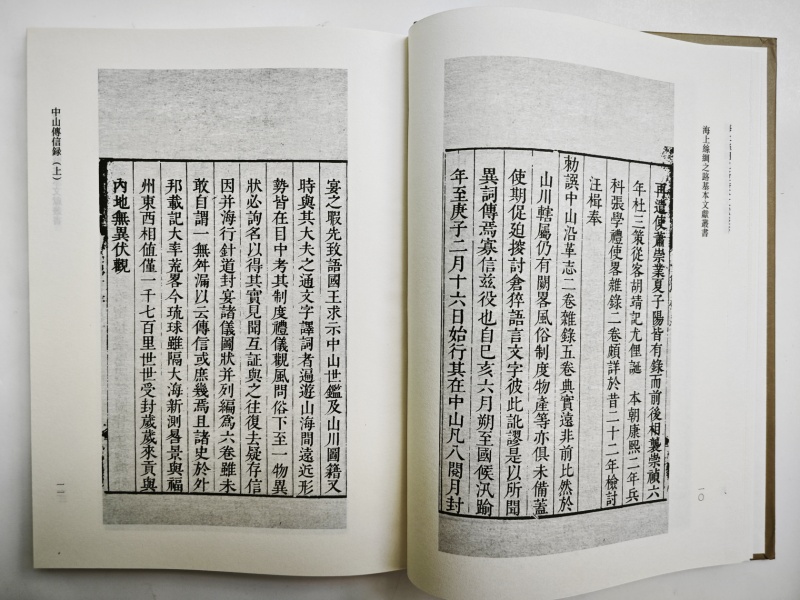 海上絲綢之路基本文獻叢書
再遣使蕭崇業夏子陽皆有錄而前後相襲崇禎六
年杜三策從客胡靖記尤俚誕　本朝康熙二年兵
科張學禮使畧雜錄二卷頗詳於昔二十二年檢討
汪楫奉
勅譔中山沿革志二卷雜錄五卷典實遠非前比然於
山川轄屬仍有闕畧風俗制度物產等亦俱未備蓋
使期促迫搜討倉猝語言文字彼此訛謬是以所聞
異詞傳焉寡信兹役也自己亥六月朔至國候汛踰
年至庚子二月十六日始行其在中山凡八閱月封
一〇
宴之暇先致語國王求示中山世鑑及山川圖籍又
時與其大夫之通文字譯詞者遍遊山海間遠近形
勢皆在目中考其制度禮儀觀風問俗下至一物異
狀必詢名以得其實見聞互証與之往復去疑存信
因并海行針道封宴諸儀圖狀并列編爲六卷雖未
敢自謂一無舛漏以云傳信或庶幾焉且諸史於外
邦載記大率荒畧今琉球雖隔大海新測晷景與福
州東西相值僅一千七百里世世受封歲歲來貢與
內地無異伏觀
中山傳信錄（上）
一一